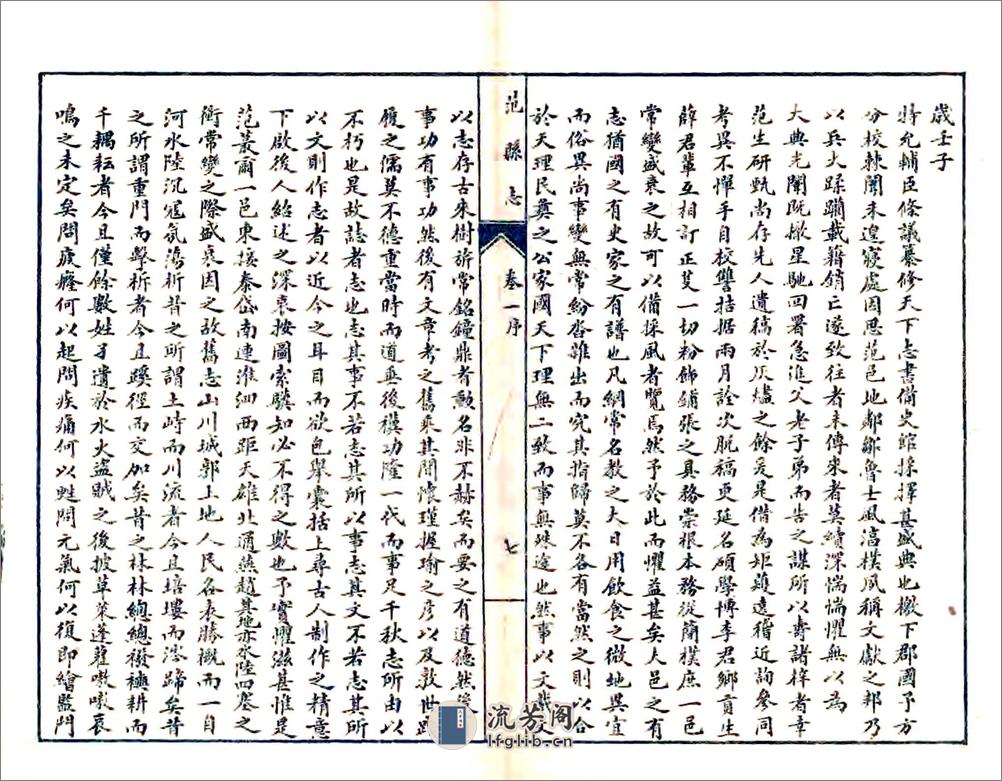 歲壬子
特允輔臣條議纂修天下志書備史館採擇甚盛典也檄下郡國予方
分校棘闈未遑寢處因思范邑地鄰鄒魯士風湻樸夙稱文獻之邦乃
以兵火蹂躪載籍銷亡遂致往者未傳來者莫續深惴惴懼無以為
大典光闈既撤星馳回署急進父老子弟而告之謀所以壽諸梓者幸
范生研甄尚存先人遺稿於灰燼之餘爰是借為矩矱遠稽近詢參同
考異不憚手自校讐拮据兩月詮次脫稿更延名碩學博李君鄉貢生
薛君輩互相訂正芟一切粉飾鋪張之具務崇根本務從簡樸庶一邑
常變盛衰之故可以備採風者覽焉然予於此而懼益甚矣夫邑之有
志猶國之有史家之有譜也凡綱常名教之大日用飲食之微地異宜
而俗異尚事變無常紛沓雜出而究其指歸莫不各有當然之則以合
於天理民彝之公家國天下理無二致而事無殊途也然事以文
范縣志
卷一序
七
以志存古來樹旂常銘鐘鼎者勳名非不赫矣而要之有道德然後
事功有事功然後有文章考之舊乘其間懷瑾握瑜之彥以及敦世
履之儒莫不德重當時而道垂後禩功隆一代而事足千秋志所由以
不朽也是故誌者志也志其事不若志其所以事志其文不若志其所
以文則作志者以近今之耳目而欲包舉囊括上尋古人制作之精意
下啟後人紹述之深衷按圖索驥知必不得之數也予實懼滋甚惟是
范蕞爾一邑東接泰岱南連淮泗西距天雄北通燕趙其地亦水陸四塞之
衝常變之際盛衰因之故舊志山川城郭土地人民名表勝概而一自
河水陸沉寇氛蕩析昔之所謂土峙而川流者今且培塿而涔蹄矣昔
之所謂重門而擊柝者今且蹊徑而交加矣昔之林林總總襏襫耕而
千耦耘者今且僅餘數姓孑遺於水火盜賊之後披草萊蓬藋嗷嗷哀
鳴之未定矣問疲癃何以起問疾痛何以甦問元氣何以復即繪監門
流芳阁
lfglib.cn